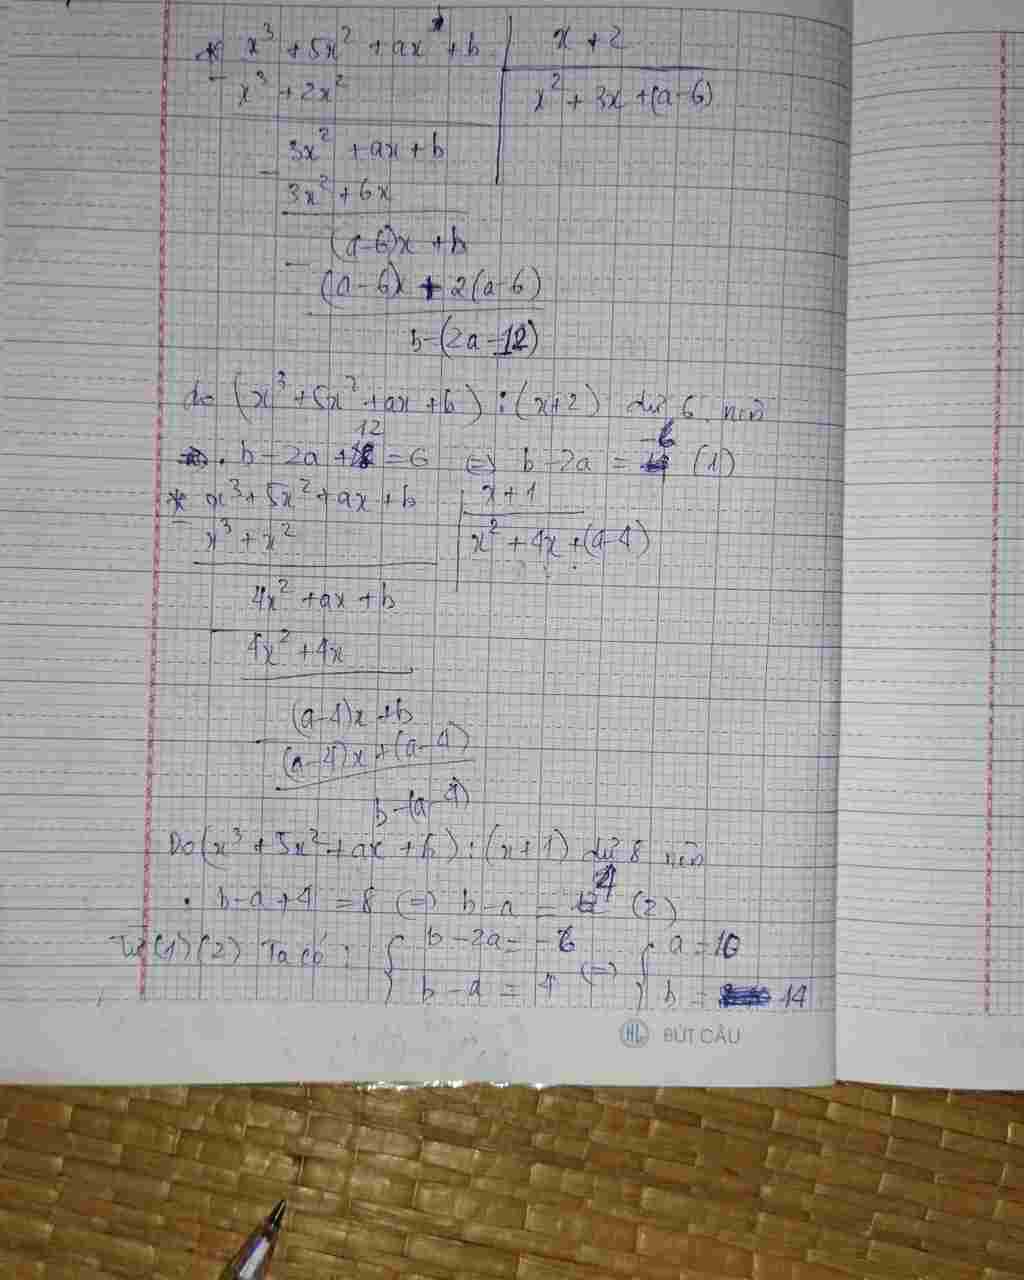 * x³ + 5x² + ax + b | x + 2
- x³ + 2x² | x² + 3x + (a-6)
3x² + ax + b
- 3x² + 6x
(a-6)x + b
- (a-6)x + 2(a-6)
b-(2a-12)
do (x³ + 5x² + ax + b) : (x+2) dư 6 nên
. b - 2a + 12 = 6 <=> b - 2a = -6 (1)
* x³ + 5x² + ax + b | x + 1
- x³ + x² | x² + 4x + (a-4)
4x² + ax + b
- 4x² + 4x
(a-4)x + b
- (a-4)x + (a-4)
b-(a-4)
Do (x³ + 5x² + ax + b) : (x+1) dư 8 nên
. b-a+4 = 8 <=> b-a = 4 (2)
Từ (1) (2) Ta có : { b - 2a = -6 <=> { a = 10
b - a = 4 b = 14
HL BÚT CÂU